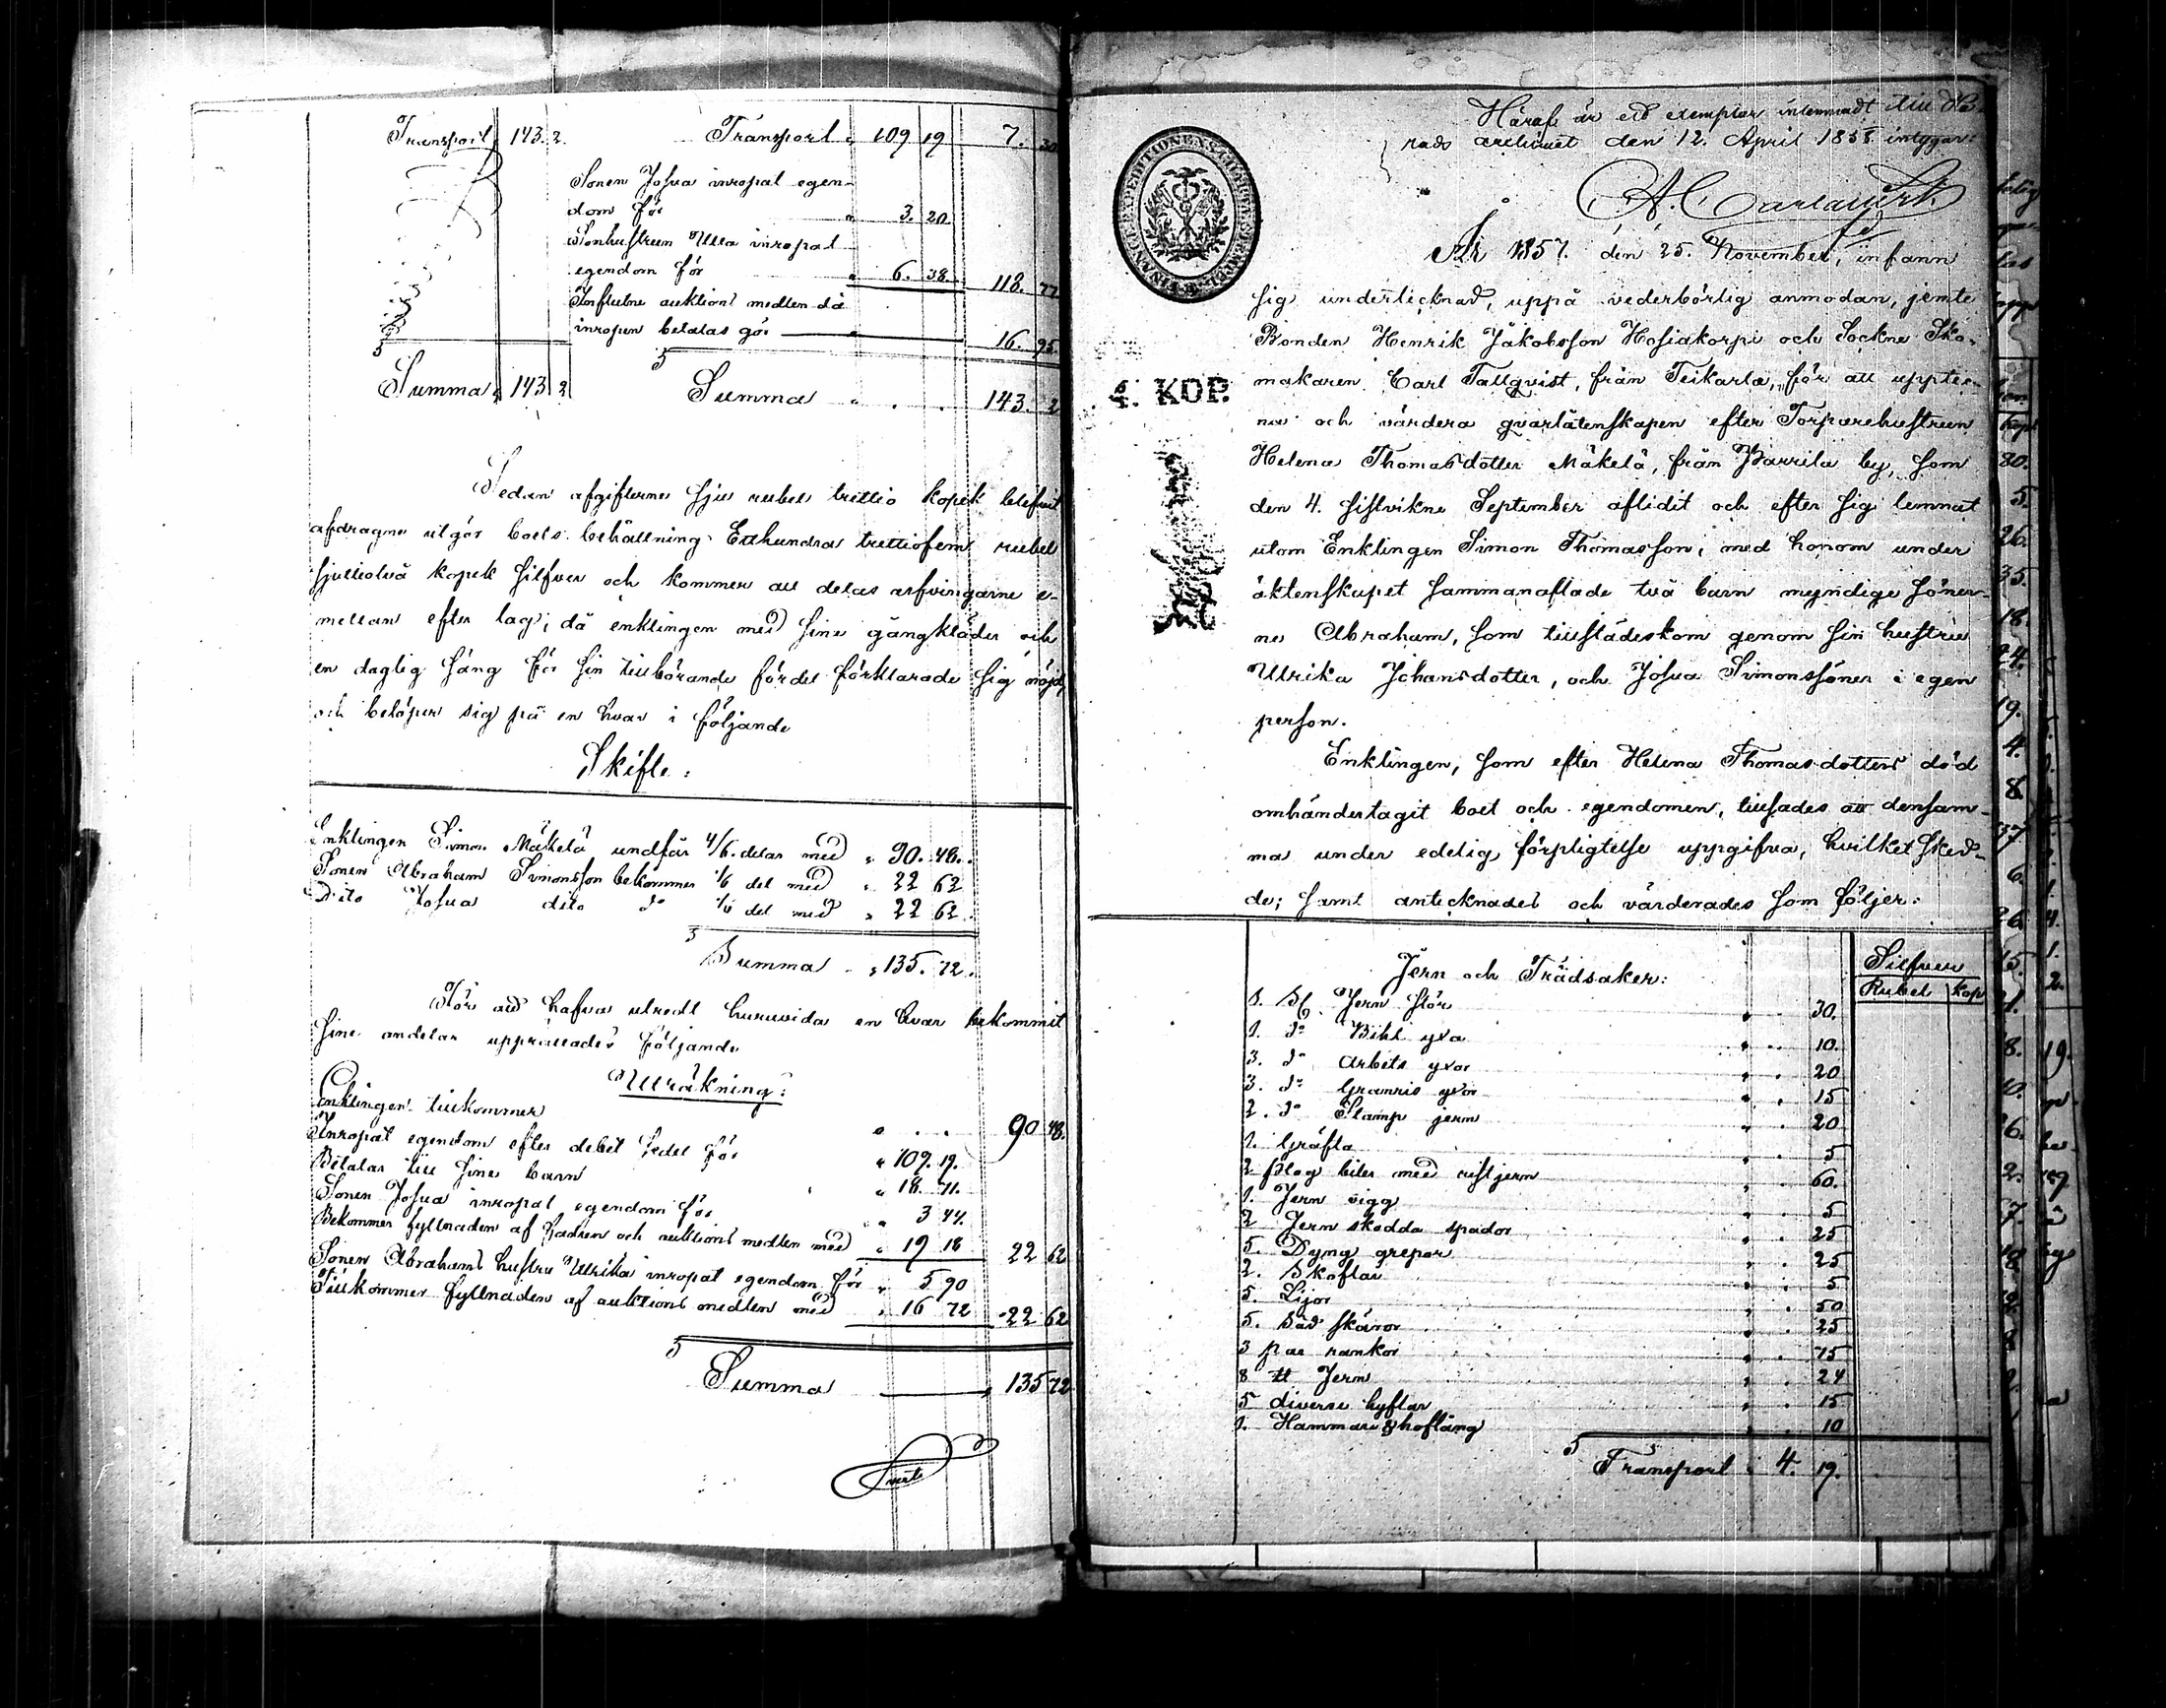 Transport 143. 2. Transport „ 109 19 7. 30
Sonen Josua inropat egen-
dom för „ 3. 20
Sonhustrun Ulla inropat
egendom för „ 6. 38. 118. 77
Influtne auktions medlen då
inropen betalas gör „ 16. 95.
Summa 143 2 Summa „ 143. 2
Sedan afgifterne sju rubel trettio kopek blifvit
afdragne utgör boets behållning Etthundra trettiofem rubel
sjuttiotvå kopek silfver och kommer att delas arfvingarne e-
mellan efter lag; då enklingen med sine gångkläder och
en daglig säng för sin tillbörande fördel förklarade sig nöjd,
och belöper sig på en hvar i följande
Skifte:
Enklingen Simon Mäkelä undfår 4/6. delar med „ 90. 48.
Sonen Abraham Simonsson bekommer 1/6 del med „ 22 62
Dito Josua dito d:o 1/6 del med „ 22 62.
Summa „ 135. 72.
För att hafva utredt huruvida en hvar bekommit
sine andelar upprättades följande
Uträkning:
Enklingen tillkommer „ 90 48.
Inropat egendom efter debet sedel för „ 109. 19.
Betalar till sine barn „ 18. 71.
Sonen Josua inropat egendom för „ 3 44.
Bekommer fyllnaden af fadren och auktions medlen med „ 19 18 22 62
Sonen Abrahams hustru Ulrika inropat egendom för „ 5 90
Tillkommer fyllnaden af auktions medlen med „ 16 72 22 62
Summa „ 135 72
Vert
Häraf är ett exemplar inlemnadt till Hä-
rads archivet den 12. April 1858 intygar:
FINANCE EXPEDITIONENS
4. KOP.
År 1857. den 25. November, infann
sig undertecknad, uppå vederbörlig anmodan, jemte
Bonden Henrik Jakobsson Hosiakorpi och Sockne Sko-
makaren Carl Tallqvist, från Teikarla, för att uppteck-
na och värdera qvarlåtenskapen efter Torparehustrun
Helena Thomasdotter Mäkelä, från Karrila by, som
den 4. sistvikne September aflidit och efter sig lemnat
utom Enklingen Simon Thomasson, med honom under
äktenskapet sammanaflade två barn myndige söner-
ne Abraham, som tillstädeskom genom sin hustru
Ulrika Johansdotter, och Josua Simonssöner i egen
person.
Enklingen, som efter Helena Thomasdotters död
omhändertagit boet och egendomen, tillsades att densam-
ma under edelig förpligtelse uppgifva, hvilket sked-
de; samt antecknades och värderades som följer:
Jern och Trädsaker: Silfver
Rubel kop
1. St Jern stör „ 30.
1. d:o Bihl yxa „ 10.
3. d:o Arbets yxor „ 20
3. d:o Granris yxor „ 15
2. d:o Stamp jern „ 20
1. Gräfta „ 5
2 plog biler med ristjern „ 60.
1. Jern vigg „ 5
2 Jern skodda spador „ 25
5. Dyng grepar „ 25
2. Skoflar „ 5
5. Lijor „ 50
5. Säd skäror „ 25
3 par rankor „ 75
8 ℔ Jern „ 24
5 diverse hyflar „ 15
1. Hammare & hoftång „ 10
Transport „ 4. 19.